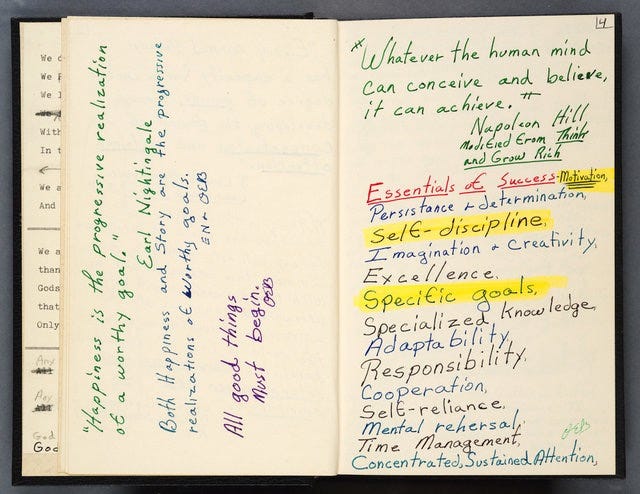 We d
We p
We l
With
In t
We a
And
We a
than
Gods
that
Only
Any
All
Any
All
God
God
"Happiness is the progressive realization
of a worthy goal."
Earl Nightingale
Both Happiness and Story are the progressive
realizations of worthy goals.
EN + OEB
All good things
must begin.
OEB
4
"Whatever the human mind
can conceive and believe,
it can achieve."
Napoleon Hill
modified from Think
and Grow Rich
Essentials of Success-Motivation,
Persistance + determination,
Self-discipline,
Imagination + Creativity,
Excellence,
Specific goals,
Specialized Knowledge,
Adaptability,
Responsibility,
Cooperation,
Self-reliance,
Mental rehersal,
OEB
Time Management,
Concentrated, Sustained Attention,